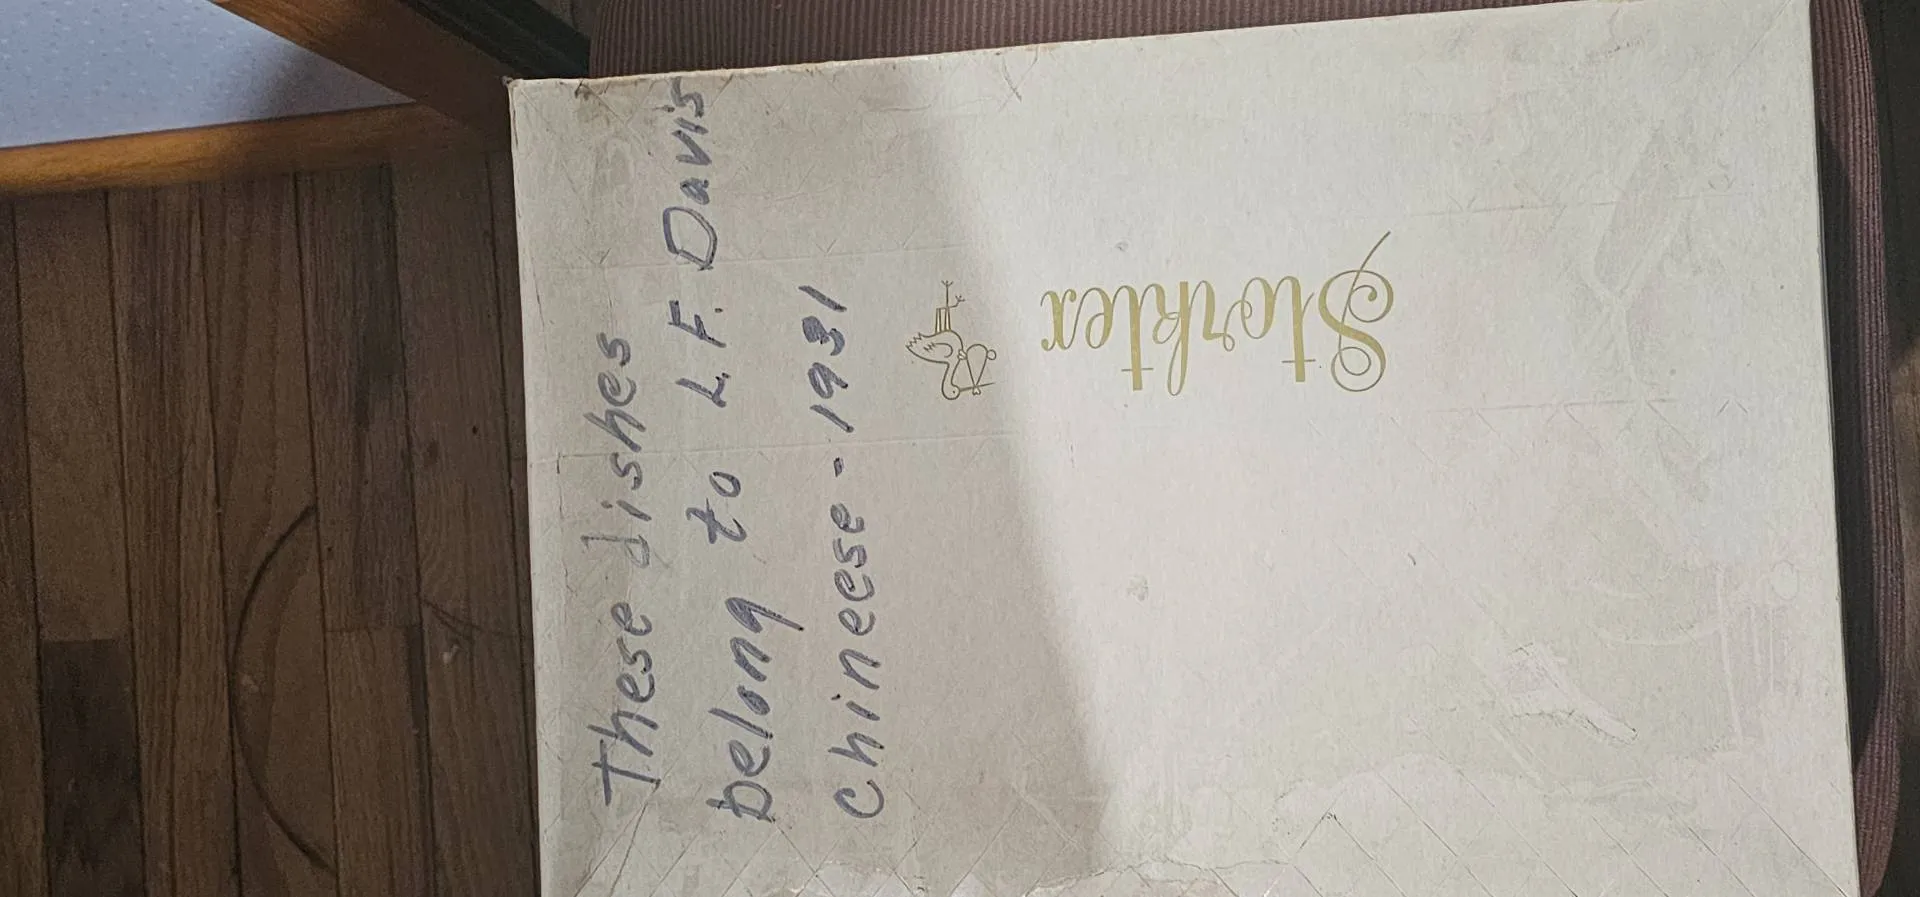 These dishes
belong to L. F. Davis
Chineese - 1931
Storktex